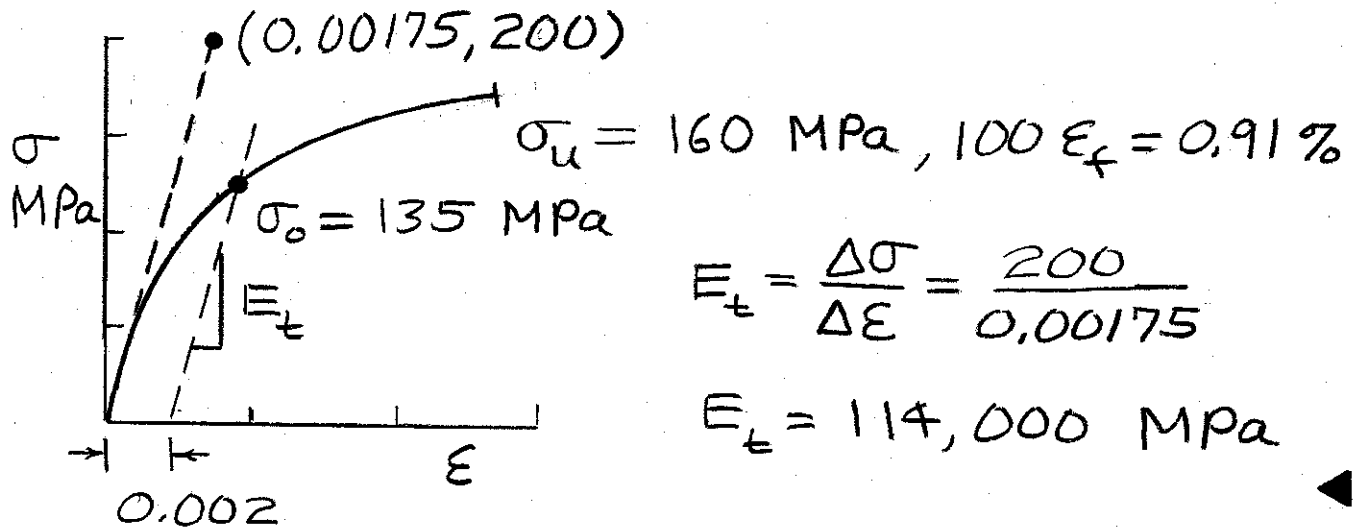 (0.00175, 200)
σ
MPa
σᵤ = 160 MPa, 100 ε_f = 0.91 %
σ₀ = 135 MPa
E_t
E_t = Δσ/Δε = 200/0.00175
E_t = 114,000 MPa
ε
0.002